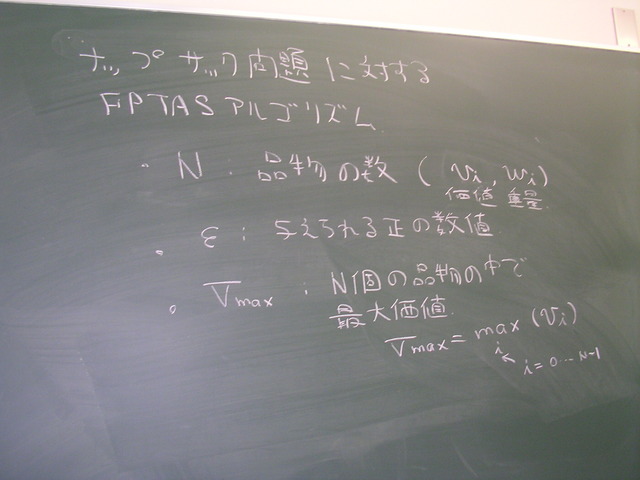 ナップサック問題に対する
FPTASアルゴリズム
・ N : 品物の数 ( vi, wi )
価値 重量
・ ε : 与えられる正の数値
・ Vmax : N個の品物の中で
最大価値
Vmax = max (vi)
i ← i=0…N-1